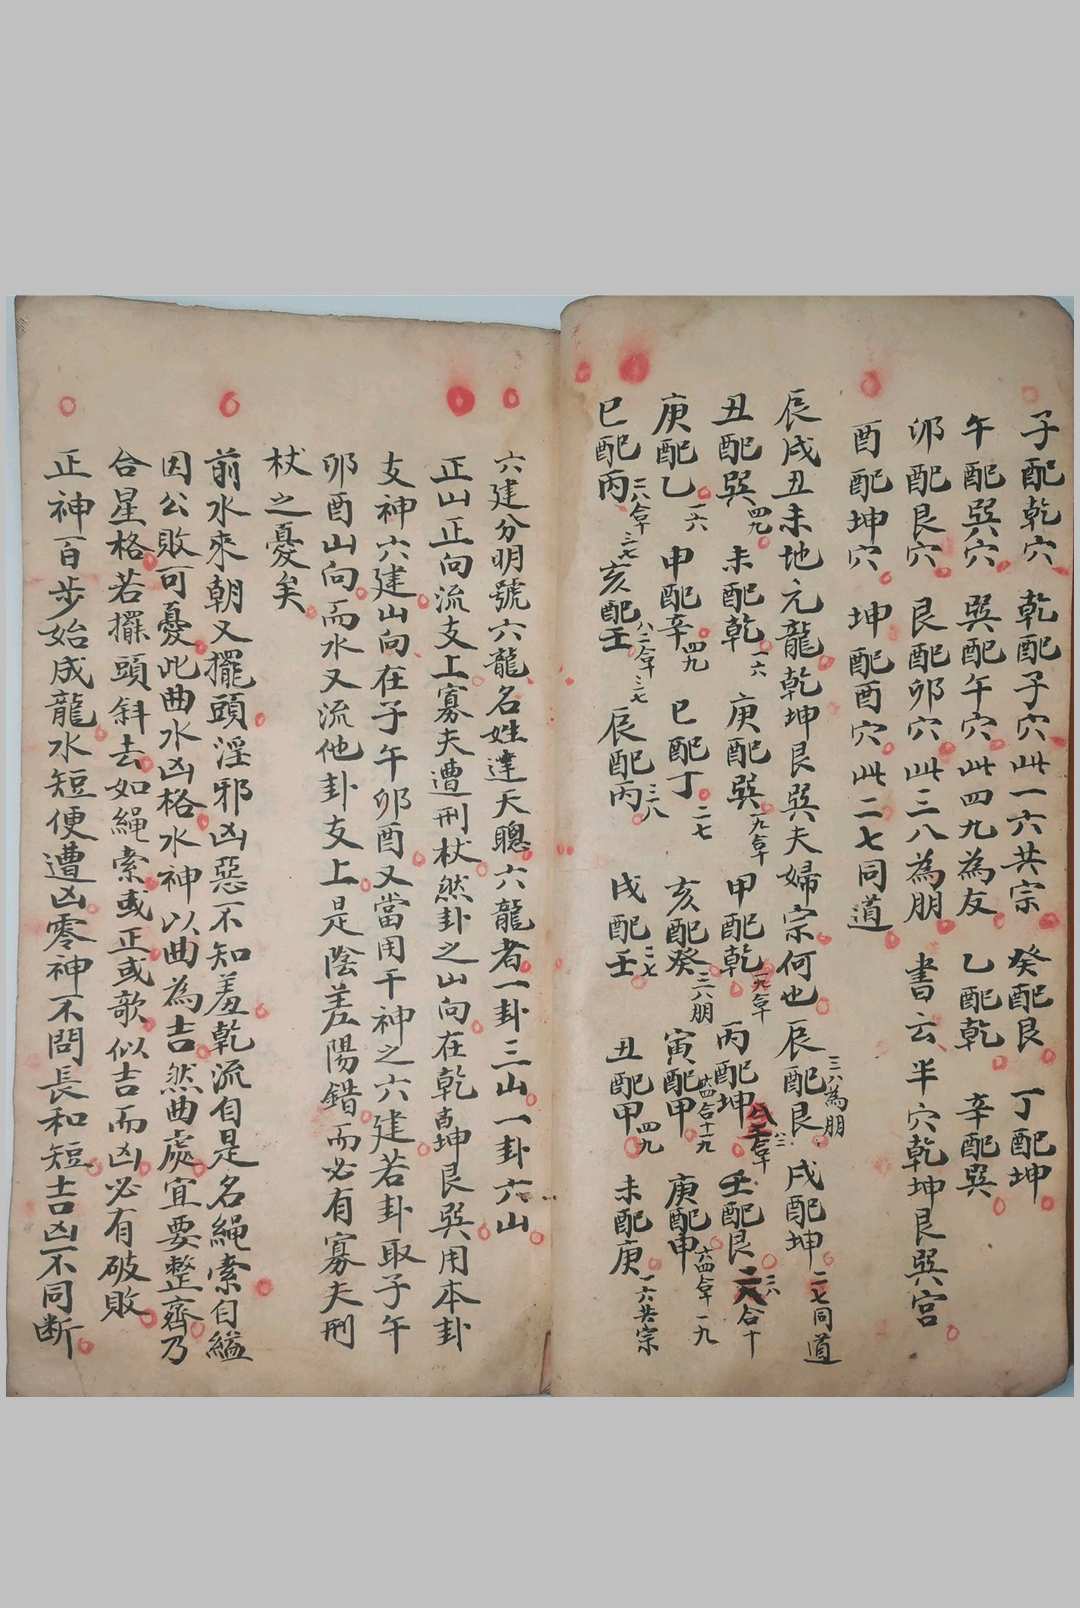 子配乾穴 乾配子穴此一六共宗 癸配艮 丁配坤
午配巽穴 巽配午穴此四九為友 乙配乾 辛配巽
卯配艮穴 艮配卯穴此三八為朋 書云半穴乾坤艮巽宮
酉配坤穴 坤配酉穴此二七同道
辰戌丑未地元龍乾坤艮巽夫婦宗何也 辰配艮三八為朋 戌配坤二七同道
丑配巽四九 未配乾一六 庚配巽 甲配乾 丙配坤 壬配艮
庚配乙一六 申配辛四九 巳配丁二七 亥配癸三八朋 寅配甲 庚配申
巳配丙 亥配壬 辰配丙三八 戌配壬二七 丑配甲四九 未配庚一六共宗
六建分明號六龍名姓達天聰六龍者一卦三山一卦六山
正山正向流支上寡夫遭刑杖然卦之山向在乾坤艮巽用本卦
支神六建山向在子午卯酉又當用干神之六建若卦取子午
卯酉山向而水又流他卦支上是陰差陽錯而必有寡夫刑
杖之憂矣
前水來朝又擺頭淫邪凶惡不知羞乾流自是名繩索自縊
因公敗可憂此曲水凶格水神以曲為吉然曲處宜要整齊乃
合星格若擺頭斜去如繩索或正或歌似吉而凶必有破敗
正神百步始成龍水短便遭凶零神不問長和短吉凶不同断